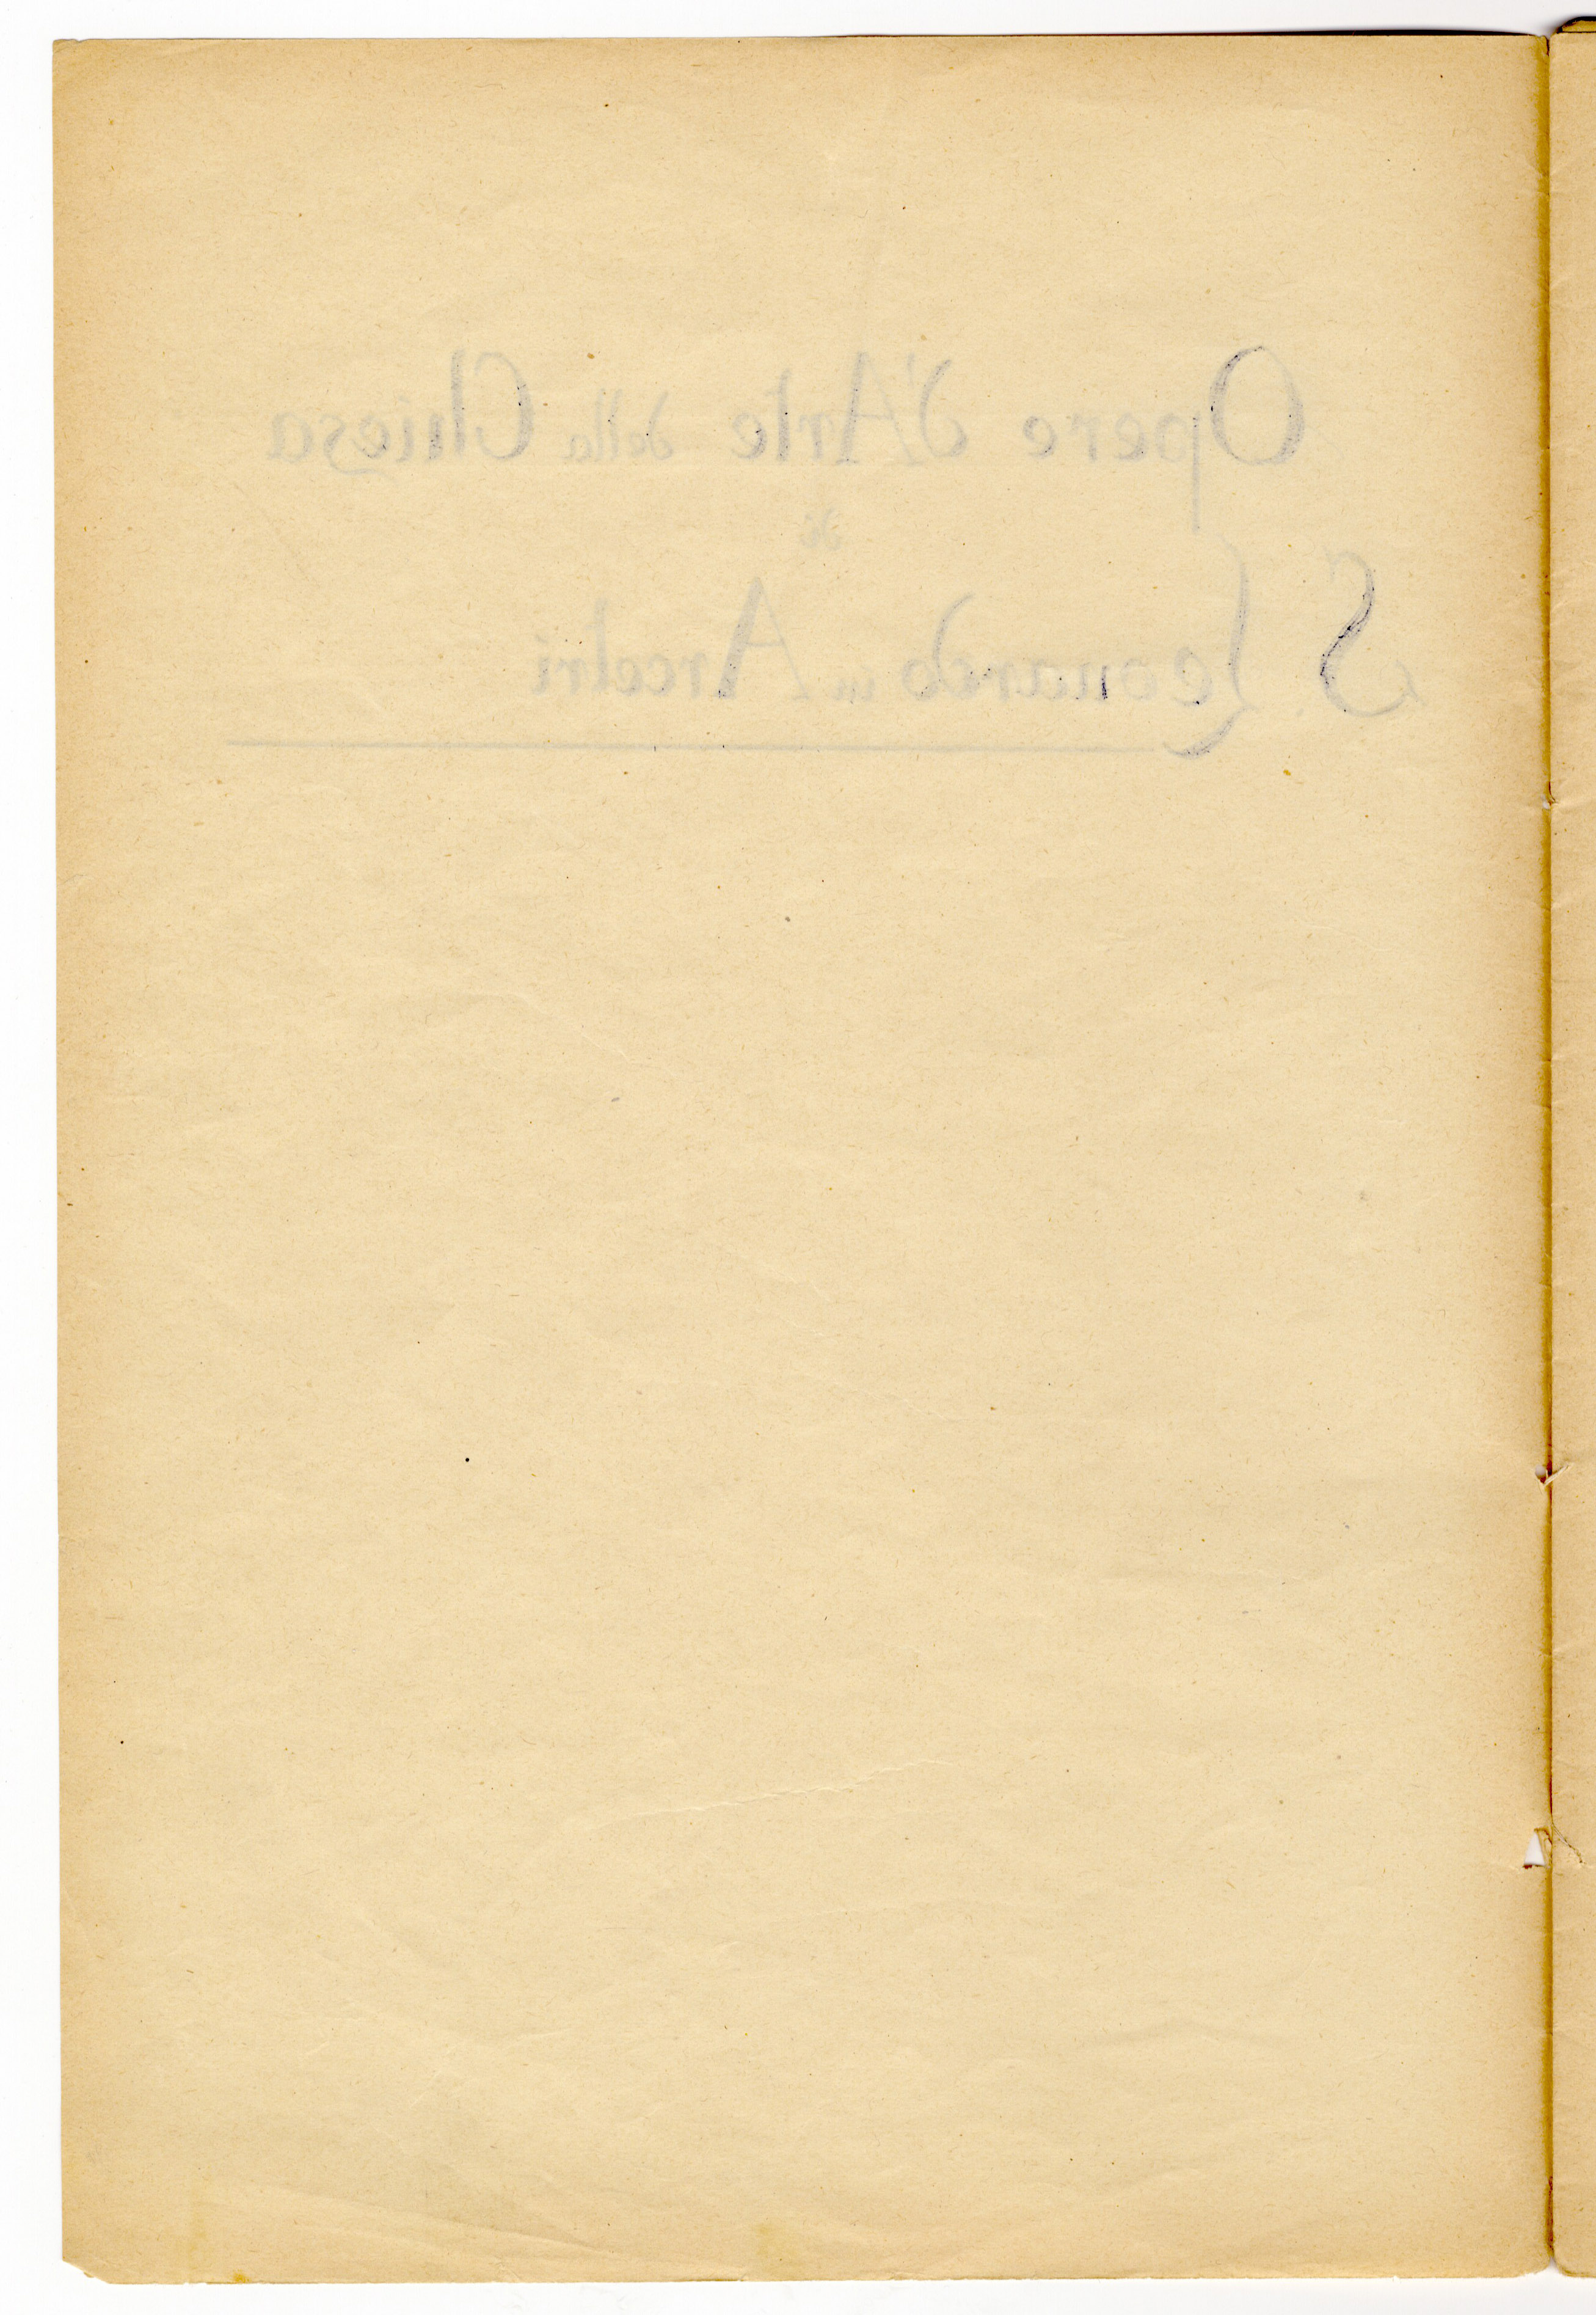 Opere d'Arte della Chiesa
di
S. Leonardo in Arcetri